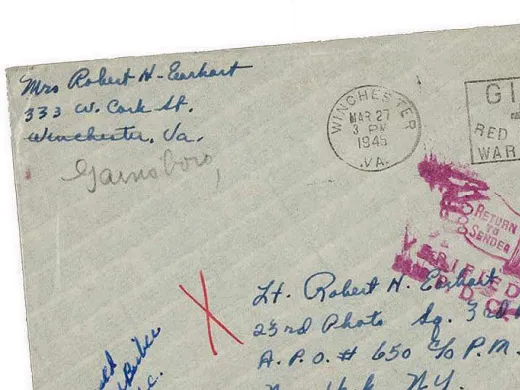 Mrs Robert H. Earhart
333 W. Cork St.
Winchester, Va.
Gainsboro,
WINCHESTER
MAR 27
3 PM
1945
VA.
GI
RED
WAR
RETURN
TO
SENDER
VERIFIED
Lt. Robert H. Earhart
23rd Photo Sq. 3rd
A.P.O. # 650 c/o P.M.
New York, N.Y.